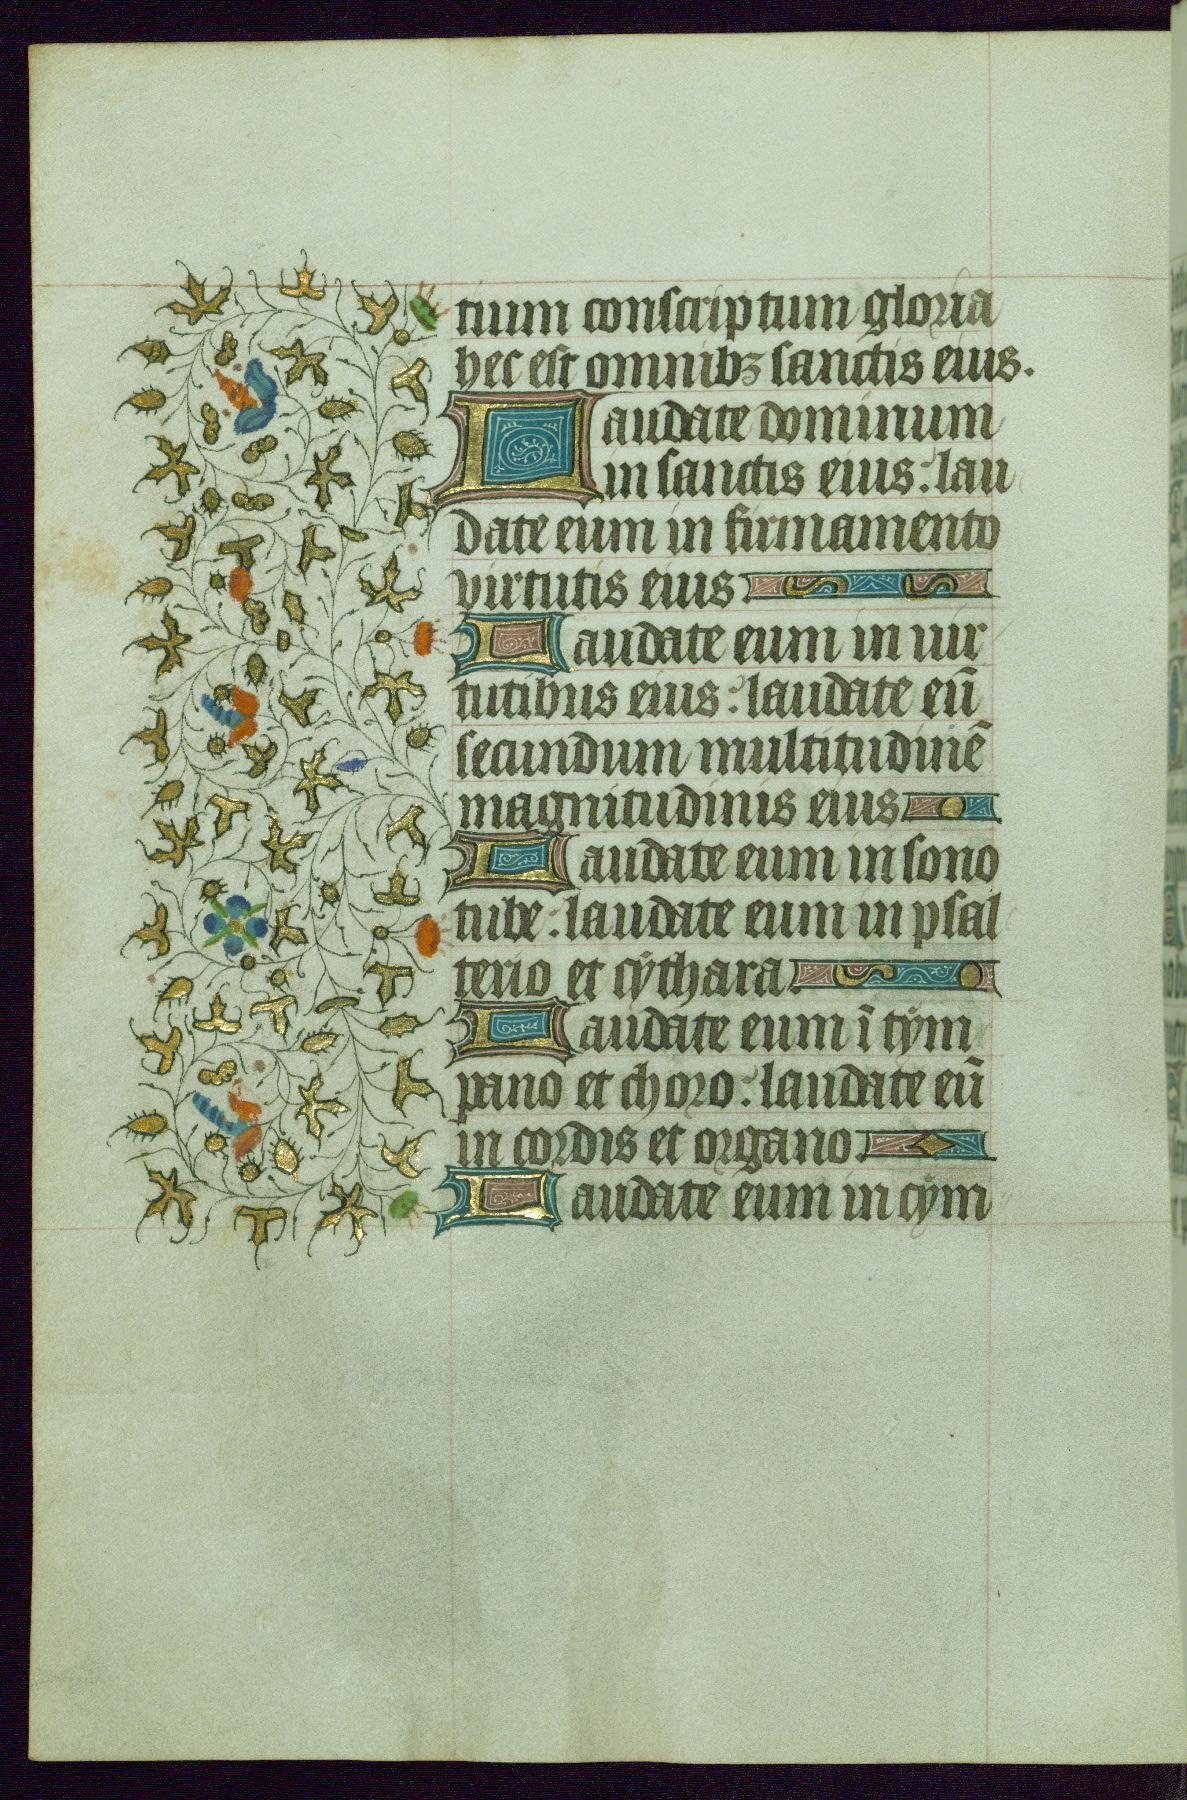 tium conscriptum gloria
hec est omnibꝫ sanctis eius.
Laudate dominum
in sanctis eius: lau
date eum in firmamento
virtutis eius.
Laudate eum in uir
tutibus eius: laudate eū
secundum multitudinē
magnitudinis eius
Laudate eum in sono
tube: laudate eum in psal
terio et cythara.
Laudate eum ī tym
pano et choro: laudate eū
in cordis et organo.
Laudate eum in cym